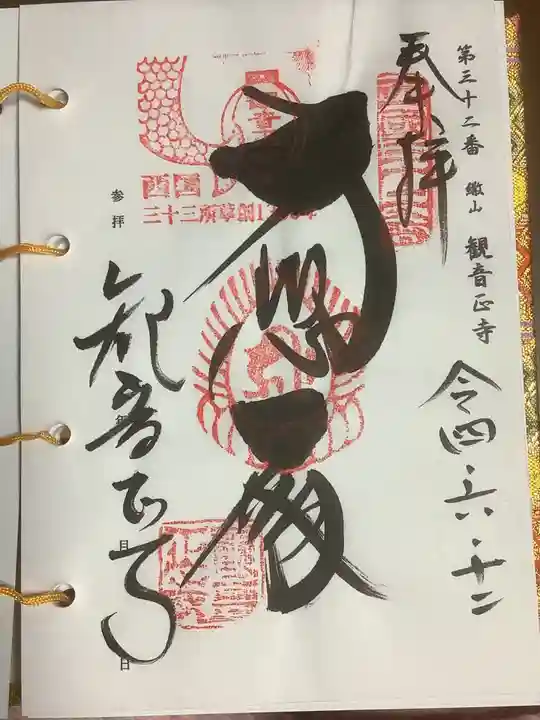 第三十二番 繖山 観音正寺
奉拝
令四・六・十二
大悲殿
観音正寺
西国
三十三所草創1300年
参拝
年
月
日